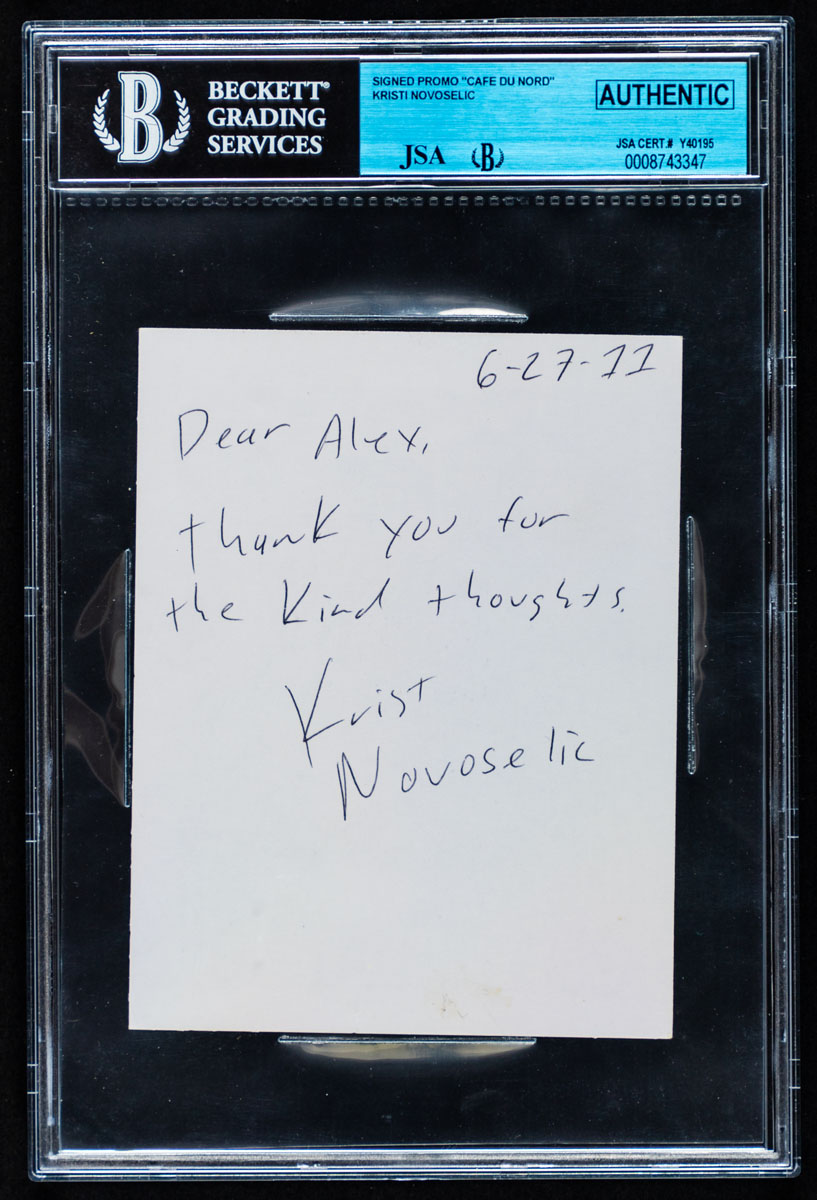 BECKETT®
GRADING
SERVICES
SIGNED PROMO "CAFE DU NORD"
KRISTI NOVOSELIC
AUTHENTIC
JSA B
JSA CERT.# Y40195
0008743347
6-27-11
Dear Alex,
thank you for
the Kind thoughts.
Krist
Novoselic